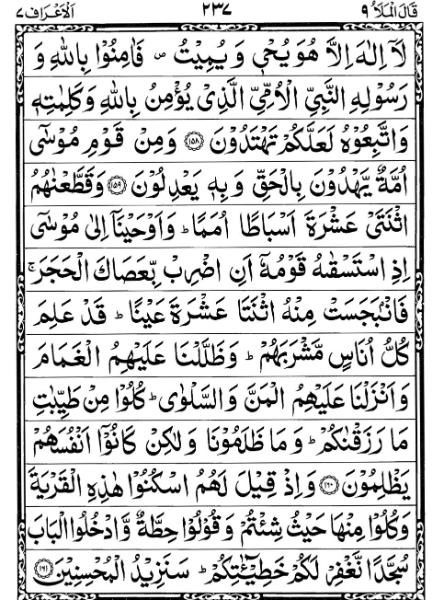 قَالَ الْمَلَاُ ٩ ٢٣٧ اَلْاَعْرَاف ٧
لَاۤ اِلٰهَ اِلَّا هُوَ يُحْيٖ وَ يُمِيْتُ ۪ فَاٰمِنُوْا بِاللّٰهِ وَ
رَسُوْلِهِ النَّبِيِّ الْاُمِّيِّ الَّذِىْ يُؤْمِنُ بِاللّٰهِ وَ كَلِمٰتِهٖ
وَاتَّبِعُوْهُ لَعَلَّكُمْ تَهْتَدُوْنَ ﴿١٥٨﴾ وَ مِنْ قَوْمِ مُوْسٰۤى
اُمَّةٌ يَّهْدُوْنَ بِالْحَقِّ وَ بِهٖ يَعْدِلُوْنَ ﴿١٥٩﴾ وَقَطَّعْنٰهُمُ
اثْنَتَيْ عَشْرَةَ اَسْبَاطًا اُمَمًا ؕ وَ اَوْحَيْنَاۤ اِلٰى مُوْسٰۤى
اِذِ اسْتَسْقٰىهُ قَوْمُهٗۤ اَنِ اضْرِبْ بِّعَصَاكَ الْحَجَرَ ۚ
فَانْۢبَجَسَتْ مِنْهُ اثْنَتَا عَشْرَةَ عَيْنًا ؕ قَدْ عَلِمَ
كُلُّ اُنَاسٍ مَّشْرَبَهُمْ ؕ وَظَلَّلْنَا عَلَيْهِمُ الْغَمَامَ
وَ اَنْزَلْنَا عَلَيْهِمُ الْمَنَّ وَ السَّلْوٰى ؕ كُلُوْا مِنْ طَيِّبٰتِ
مَا رَزَقْنٰكُمْ ؕ وَ مَا ظَلَمُوْنَا وَ لٰكِنْ كَانُوْۤا اَنْفُسَهُمْ
يَظْلِمُوْنَ ﴿١٦٠﴾ وَ اِذْ قِيْلَ لَهُمُ اسْكُنُوْا هٰذِهِ الْقَرْيَةَ
وَ كُلُوْا مِنْهَا حَيْثُ شِئْتُمْ وَ قُوْلُوْا حِطَّةٌ وَّ ادْخُلُوا الْبَابَ
سُجَّدًا نَّغْفِرْ لَكُمْ خَطِيْٓـٰٔتِكُمْ ؕ سَنَزِيْدُ الْمُحْسِنِيْنَ ﴿١٦١﴾